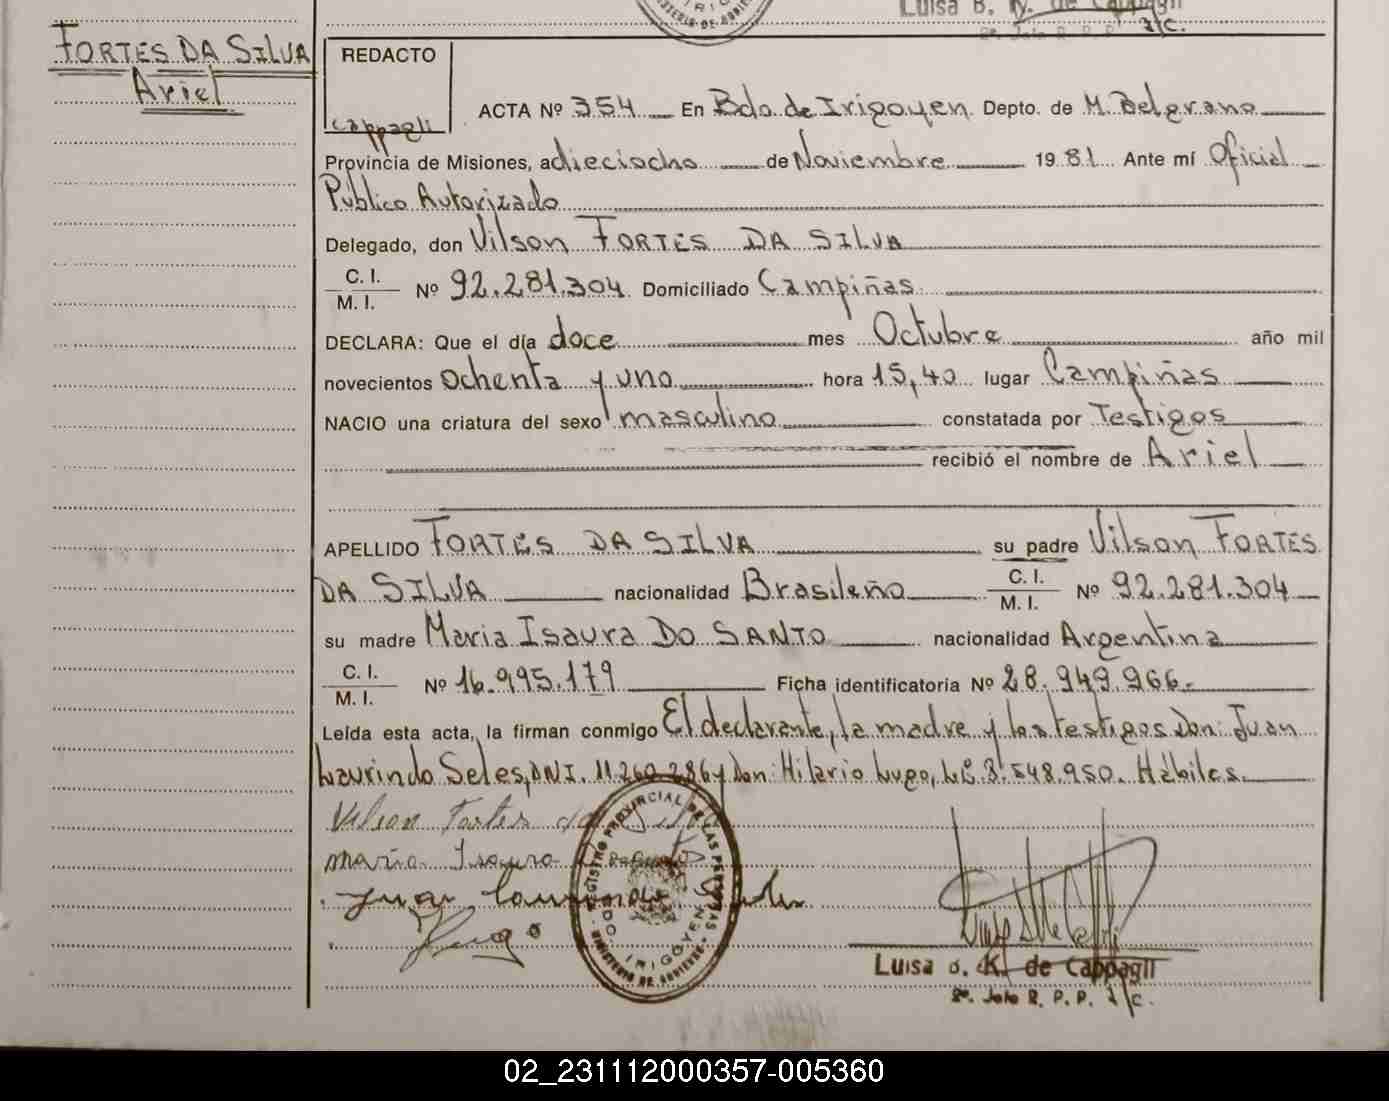 Luisa B. K. de Cappagli
2º. Jefe R. P. P. I/c.
FORTES DA SILVA
Ariel
REDACTO
Cappagli
ACTA Nº 354 En Bdo. de Irigoyen Depto. de M. Belgrano
Provincia de Misiones, a dieciocho de Noviembre 1981 Ante mí Oficial
Público Autorizado
Delegado, don Vilson FORTES DA SILVA
C. I.
M. I. Nº 92.281.304 Domiciliado Campiñas
DECLARA: Que el día doce mes Octubre año mil
novecientos ochenta y uno hora 15,40 lugar Campiñas
NACIO una criatura del sexo masculino constatada por Testigos
recibió el nombre de Ariel
APELLIDO FORTES DA SILVA su padre Vilson FORTES
DA SILVA nacionalidad Brasileño C. I.
M. I. Nº 92.281.304
su madre Maria Isaura DO SANTO nacionalidad Argentina
C. I.
M. I. Nº 16.995.179 Ficha identificatoria Nº 28.949.966.-
Leída esta acta, la firman conmigo El declarante, la madre y los testigos Don: Juan
Laurindo Seles, DNI. 11.260.286 y Don: Hilario Lugo, L.E. 8.548.950. Hábiles.
Vilson Fortes da Silva
maria Isaura
Juan
Lugo
REGISTRO PROVINCIAL DE LAS PERSONAS
BDO. IRIGOYEN
MINISTERIO DE GOBIERNO
Luisa B. K. de Cappagli
2º. Jefe R. P. P. I/c.
02_231112000357-005360